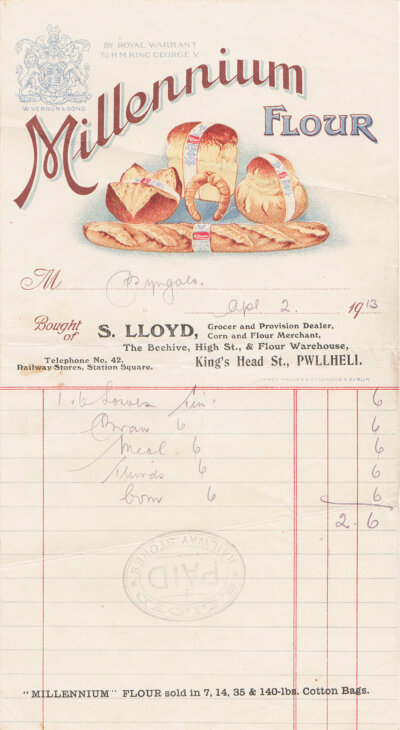 BY ROYAL WARRANT
TO H.M. KING GEORGE V.
W. VERNON & SONS
Millennium
FLOUR
M
Apl 2. 1913
Bought of S. LLOYD, Grocer and Provision Dealer,
Corn and Flour Merchant,
The Beehive, High St., & Flour Warehouse,
Telephone No. 42. King's Head St., PWLLHELI.
Railway Stores, Station Square.
6 Loaves Tin. 6
Bran 6 6
Meal 6 6
6 6
Corn 6 6
2.6
RAILWAY STORES
PAID
"MILLENNIUM" FLOUR sold in 7, 14, 35 & 140-lbs. Cotton Bags.